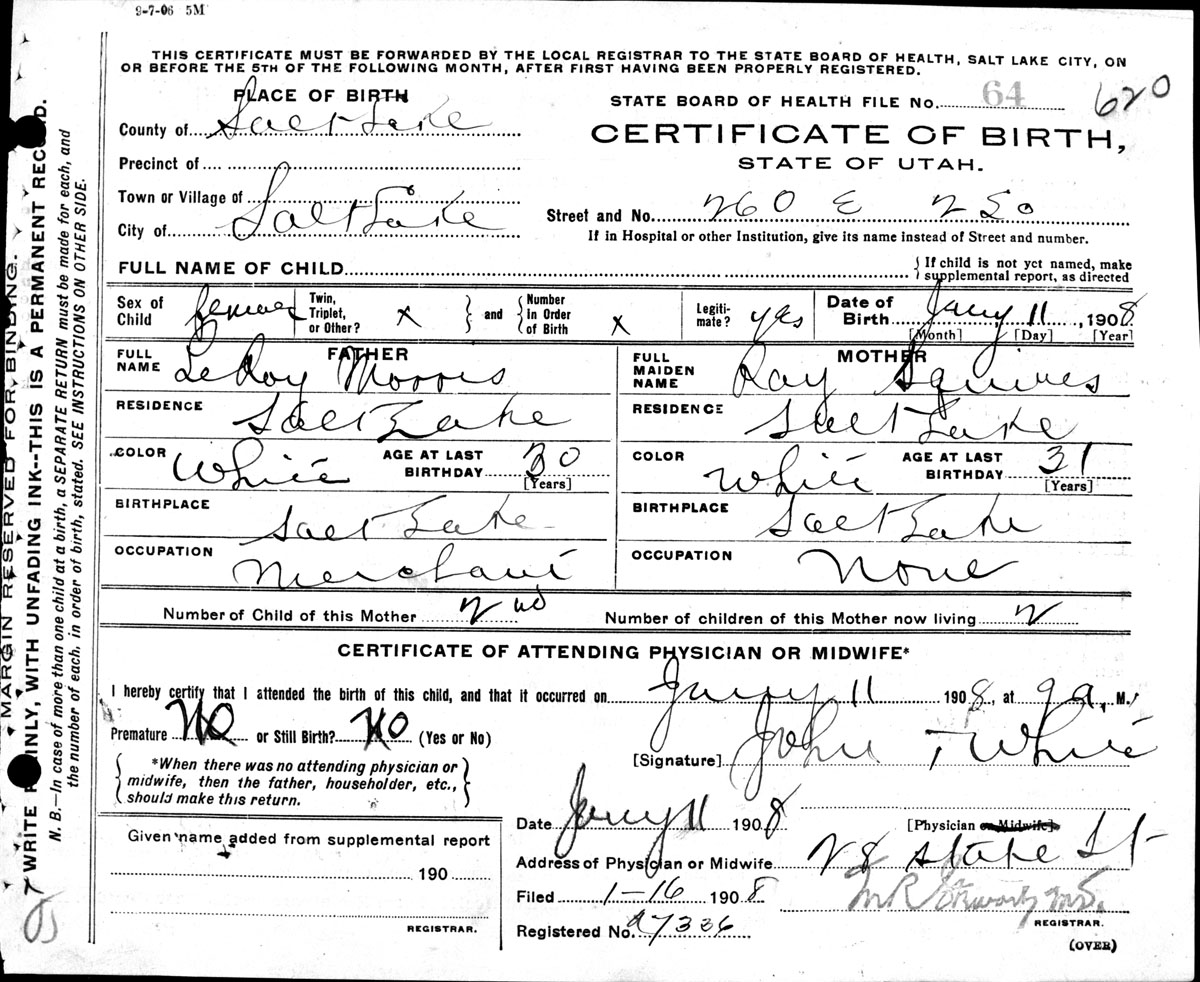 9-7-06 5M
THIS CERTIFICATE MUST BE FORWARDED BY THE LOCAL REGISTRAR TO THE STATE BOARD OF HEALTH, SALT LAKE CITY, ON
OR BEFORE THE 5TH OF THE FOLLOWING MONTH, AFTER FIRST HAVING BEEN PROPERLY REGISTERED.
PLACE OF BIRTH
County of Salt Lake
Precinct of
Town or Village of
City of Salt Lake
STATE BOARD OF HEALTH FILE No. 64 620
CERTIFICATE OF BIRTH,
STATE OF UTAH.
Street and No. 260 E 2 So
If in Hospital or other Institution, give its name instead of Street and number.
FULL NAME OF CHILD
{ If child is not yet named, make
supplemental report, as directed
Sex of Child female
Twin, Triplet, or Other? x } and { Number In Order of Birth x
Legiti-mate? yes
Date of Birth Jany 11, 1908
[Month] [Day] [Year]
FATHER
FULL NAME LeRoy Morris
RESIDENCE Salt Lake
COLOR White AGE AT LAST BIRTHDAY 30
[Years]
BIRTHPLACE Salt Lake
OCCUPATION Merchant
MOTHER
FULL MAIDEN NAME Ray Squires
RESIDENCE Salt Lake
COLOR White AGE AT LAST BIRTHDAY 31
[Years]
BIRTHPLACE Salt Lake
OCCUPATION None
Number of Child of this Mother 2nd Number of children of this Mother now living 2
CERTIFICATE OF ATTENDING PHYSICIAN OR MIDWIFE*
I hereby certify that I attended the birth of this child, and that it occurred on Jany 11 1908, at 9 a. M.
Premature No or Still Birth? No (Yes or No)
[Signature] John T White
*When there was no attending physician or
midwife, then the father, householder, etc.,
should make this return.
Date Jany 11 1908 [Physician or Midwife]
Address of Physician or Midwife 28 State St
Filed 1-16 1908
REGISTRAR.
Registered No. 27336
(OVER)
Given name added from supplemental report
190
REGISTRAR.
MARGIN RESERVED FOR BINDING.
WRITE PLAINLY, WITH UNFADING INK--THIS IS A PERMANENT RECORD.
N. B.—In case of more than one child at a birth, a SEPARATE RETURN must be made for each, and
the number of each, in order of birth, stated. SEE INSTRUCTIONS ON OTHER SIDE.